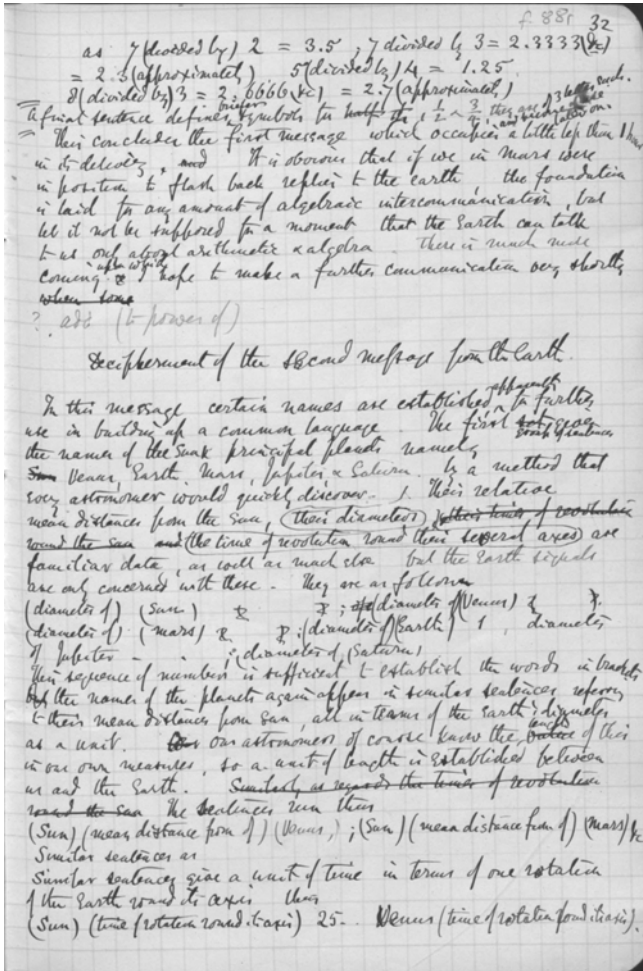 f. 88r 32
as 7 (divided by) 2 = 3.5 ; 7 divided by 3 = 2.3333 (&c)
= 2.3 (approximately) 5 (divided by) 4 = 1.25
8 (divided by) 3 = 2.6666 (&c) = 2.7 (approximately)
A final sentence defines briefer symbols for half &c, 1/2 3/4, they are of 3 letters each
This concludes the first message which occupies a little less than 1 hour
in its delivery, and It is obvious that if we in Mars were
in position to flash back replies to the earth the foundation
is laid for any amount of algebraic intercommunication, but
let it not be supposed for a moment that the Earth can talk
to us only about arithmetic & algebra There is much more
coming upon which I hope to make a further communication very shortly
when some
? add (to power of)
Decipherment of the second message from the Earth.
In this message certain names are established apparently for further
use in building up a common language. The first set group of sentences gives
the names of the Sun & principal planets namely
Sun Venus, Earth, Mars, Jupiter & Saturn. by a method that
every astronomer would quickly discover. Their relative
mean distances from the Sun, (their diameters) & their times of revolution
round the sun and (the time of revolution round their several axes) are
familiar data, as well as much else but the Earth signals
are only concerned with these. They are as follows
(diameter of) (Sun) ; (diameter of) (Venus)
(diameter of) (Mars) ; (diameter of) (Earth) 1, diameter
of Jupiter - - ; (diameter of) (Saturn)
This sequence of numbers is sufficient to establish the words in brackets
but the names of the planets again appear in similar sentences referring
to their mean distances from Sun, all in terms of the Earth's diameter
as a unit. our astronomers of course know the length of this
in our own measures, so a unit of length is established between
us and the Earth. Similarly as regards the times of revolution
round the Sun The sentences run thus
(Sun) (mean distance from of) (Venus) ; (Sun) (mean distance from of) (Mars) &c
Similar sentences as
Similar sentences give a unit of time in terms of one rotation
of the Earth round its axis thus
(Sun) (time of rotation round its axis) 25.. Venus (time of rotation round its axis).